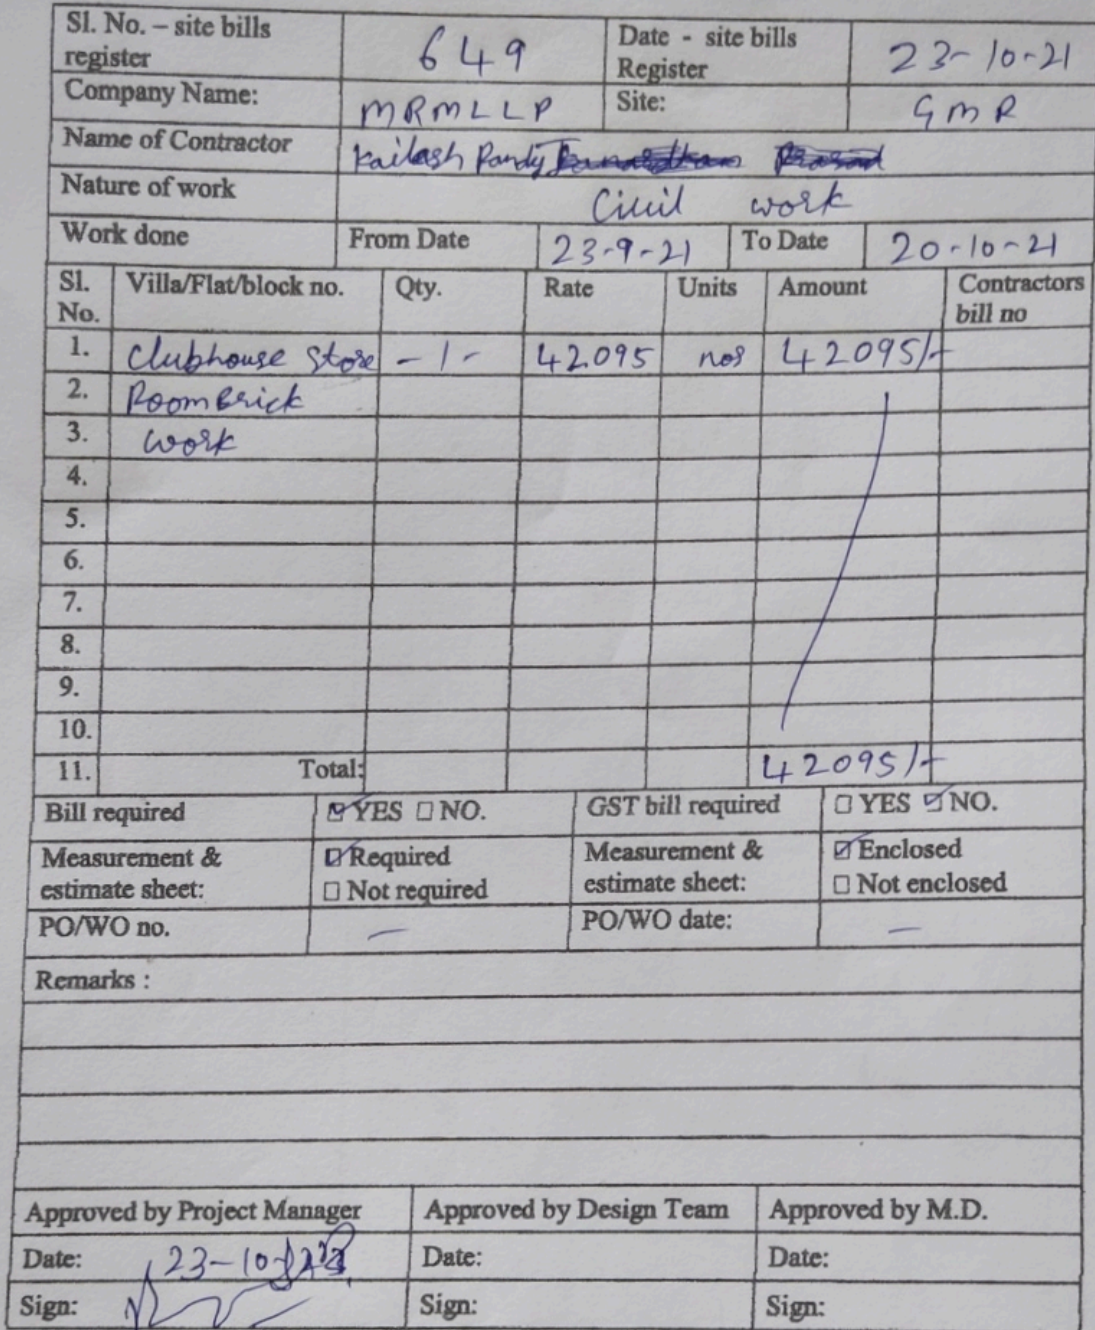 Sl. No. – site bills register 649 Date - site bills Register 23-10-21
Company Name: MRMLLP Site: GMR
Name of Contractor Kailash Pandy
Nature of work Civil work
Work done From Date 23-9-21 To Date 20-10-21
Sl. No. Villa/Flat/block no. Qty. Rate Units Amount Contractors bill no
1. Clubhouse Store - 1 - 42095 nos 42095/-
2. Room Brick
3. work
4.
5.
6.
7.
8.
9.
10.
11. Total: 42095/-
Bill required ☑ YES ☐ NO. GST bill required ☐ YES ☑ NO.
Measurement & estimate sheet: ☑ Required ☐ Not required Measurement & estimate sheet: ☑ Enclosed ☐ Not enclosed
PO/WO no. — PO/WO date: —
Remarks :
Approved by Project Manager Approved by Design Team Approved by M.D.
Date: 23-10- Date: Date:
Sign: Sign: Sign: